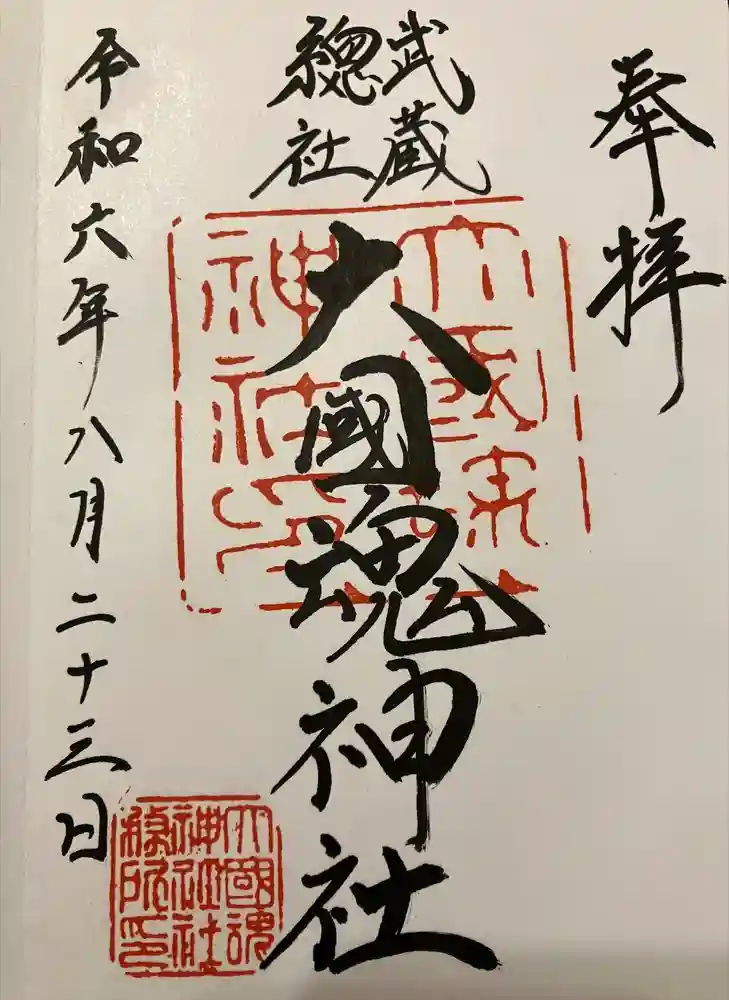 奉拝
武蔵
總社
大國魂神社
令和六年八月二十三日
大國魂
神社社
務所印